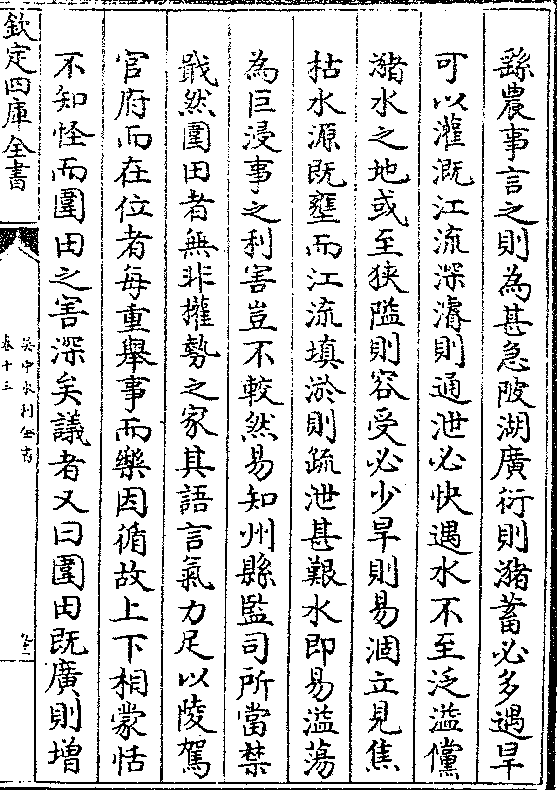 繇農事言之則為甚急陂湖廣衍則瀦蓄必多遇旱
可以灌溉江流深濬則通泄必快遇水不至泛溢儻
瀦水之地或至狹隘則容受必少旱則易涸立見焦
枯水源既壅而江流填淤則疏泄甚艱水即易溢蕩
為巨浸事之利害豈不較然易知州縣監司所當禁
戢然圍田者無非權勢之家其語言氣力足以陵駕
官府而在位者每重舉事而樂因循故上下相蒙恬
不知怪而圍田之害深矣議者又曰圍田既廣則增
欽定四庫全書
吳中水利全書
卷十三